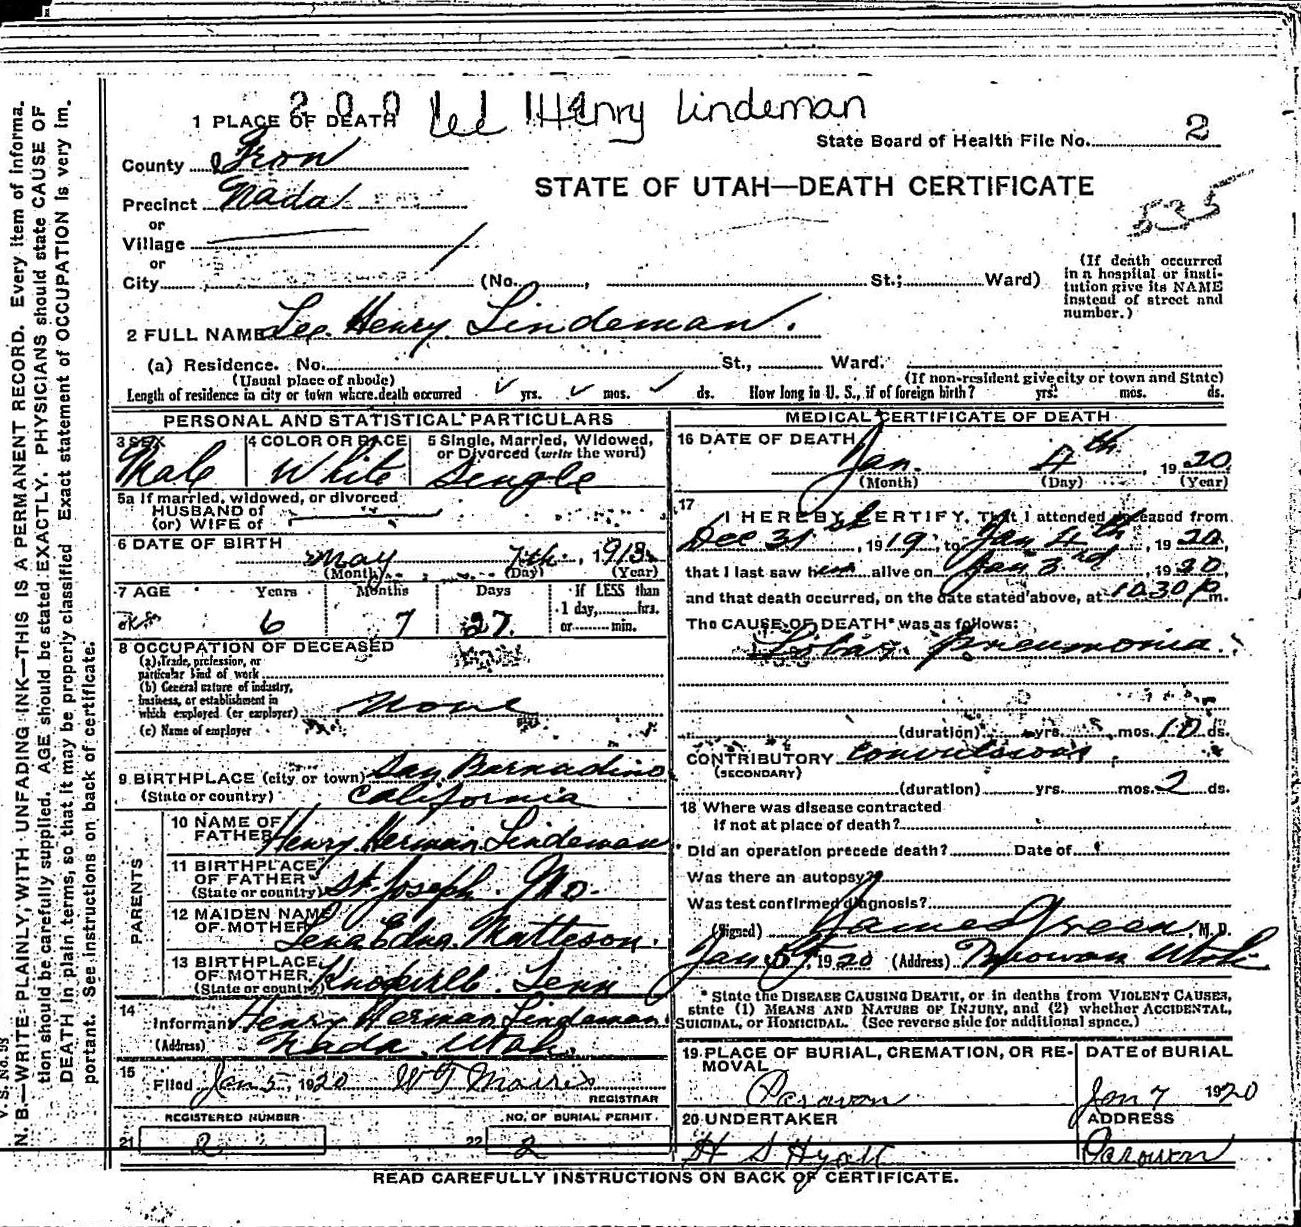 200 Lee Henry Lindeman
1 PLACE OF DEATH
State Board of Health File No. 2
County Iron
STATE OF UTAH—DEATH CERTIFICATE
Precinct Nada
535
or
Village
or
City (No. , St.; Ward)
(If death occurred
in a hospital or insti-
tution give its NAME
instead of street and
number.)
2 FULL NAME Lee Henry Lindeman.
(a) Residence. No. St., Ward.
(Usual place of abode) (If non-resident give city or town and State)
Length of residence in city or town where death occurred yrs. mos. ds. How long in U. S., if of foreign birth? yrs. mos. ds.
PERSONAL AND STATISTICAL PARTICULARS
3 SEX 4 COLOR OR RACE 5 Single, Married, Widowed,
or Divorced (write the word)
Male White Single
5a If married, widowed, or divorced
HUSBAND of
(or) WIFE of
6 DATE OF BIRTH
May 7th, 1913
(Month) (Day) (Year)
7 AGE Years Months Days If LESS than
1 day, hrs.
6 7 27 or min.
8 OCCUPATION OF DECEASED
(a) Trade, profession, or
particular kind of work
(b) General nature of industry,
business, or establishment in
which employed (or employer) None
(c) Name of employer
9 BIRTHPLACE (city or town) San Barnadino
(State or country) California
PARENTS
10 NAME OF
FATHER Henry Herman Lindeman
11 BIRTHPLACE
OF FATHER
(State or country) St. Joseph. Mo.
12 MAIDEN NAME
OF MOTHER Lena Edna Matteson.
13 BIRTHPLACE
OF MOTHER
(State or country) Knoxville Tenn
14
Informant Henry Herman Lindeman.
(Address) Nada, Utah.
15
Filed Jan 5, 1920 W J Morris
REGISTRAR
REGISTERED NUMBER NO. OF BURIAL PERMIT
21 2 22 2
MEDICAL CERTIFICATE OF DEATH
16 DATE OF DEATH
Jan. 4th, 1920
(Month) (Day) (Year)
17
I HEREBY CERTIFY, That I attended deceased from
Dec 31st, 1919, to Jan 4th, 1920,
that I last saw him alive on Jan 3rd, 1920,
and that death occurred, on the date stated above, at 10.30 P m.
The CAUSE OF DEATH* was as follows:
Lobar Pneumonia.
(duration) yrs. mos. 10 ds.
CONTRIBUTORY convulsions
(SECONDARY)
(duration) yrs. mos. 2 ds.
18 Where was disease contracted
if not at place of death?
Did an operation precede death? Date of
Was there an autopsy?
Was test confirmed diagnosis?
(Signed) James Green, M. D.
Jan 5, 1920 (Address) Parowan Utah
* State the DISEASE CAUSING DEATH, or in deaths from VIOLENT CAUSES,
state (1) MEANS AND NATURE OF INJURY, and (2) whether ACCIDENTAL,
SUICIDAL, or HOMICIDAL. (See reverse side for additional space.)
19 PLACE OF BURIAL, CREMATION, OR RE-
MOVAL
DATE of BURIAL
Parowan Jan 7 1920
20 UNDERTAKER ADDRESS
H S Hyatt Parowan
READ CAREFULLY INSTRUCTIONS ON BACK OF CERTIFICATE.
V. S. No. 98
N. B.—WRITE PLAINLY, WITH UNFADING INK—THIS IS A PERMANENT RECORD. Every item of informa-
tion should be carefully supplied. AGE should be stated EXACTLY. PHYSICIANS should state CAUSE OF
DEATH in plain terms, so that it may be properly classified. Exact statement of OCCUPATION is very im-
portant. See instructions on back of certificate.